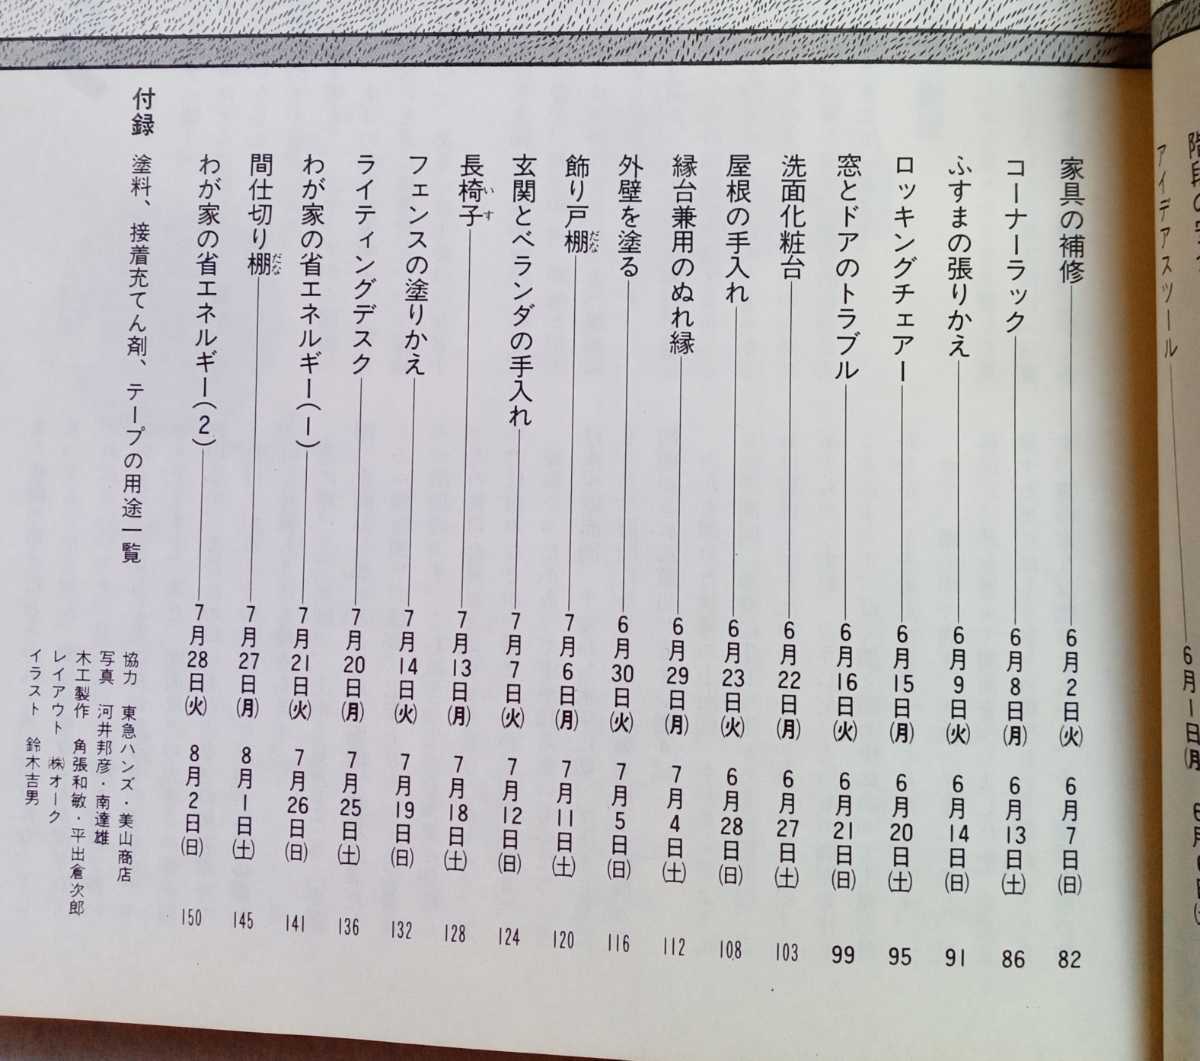 アイデアスツール
6月1日(月)
家具の補修 6月2日(火) 6月7日(日) 82
コーナーラック 6月8日(月) 6月13日(土) 86
ふすまの張りかえ 6月9日(火) 6月14日(日) 91
ロッキングチェアー 6月15日(月) 6月20日(土) 95
窓とドアのトラブル 6月16日(火) 6月21日(日) 99
洗面化粧台 6月22日(月) 6月27日(土) 103
屋根の手入れ 6月23日(火) 6月28日(日) 108
縁台兼用のぬれ縁 6月29日(月) 7月4日(土) 112
外壁を塗る 6月30日(火) 7月5日(日) 116
飾り戸棚だな 7月6日(月) 7月11日(土) 120
玄関とベランダの手入れ 7月7日(火) 7月12日(日) 124
長椅子いす 7月13日(月) 7月18日(土) 128
フェンスの塗りかえ 7月14日(火) 7月19日(日) 132
ライティングデスク 7月20日(月) 7月25日(土) 136
わが家の省エネルギー(1) 7月21日(火) 7月26日(日) 141
間仕切り棚だな 7月27日(月) 8月1日(土) 145
わが家の省エネルギー(2) 7月28日(火) 8月2日(日) 150
付録 塗料、接着充てん剤、テープの用途一覧
協力 東急ハンズ・美山商店
写真 河井邦彦・南達雄
木工製作 角張和敏・平出倉次郎
レイアウト ㈱オーク
イラスト 鈴木吉男